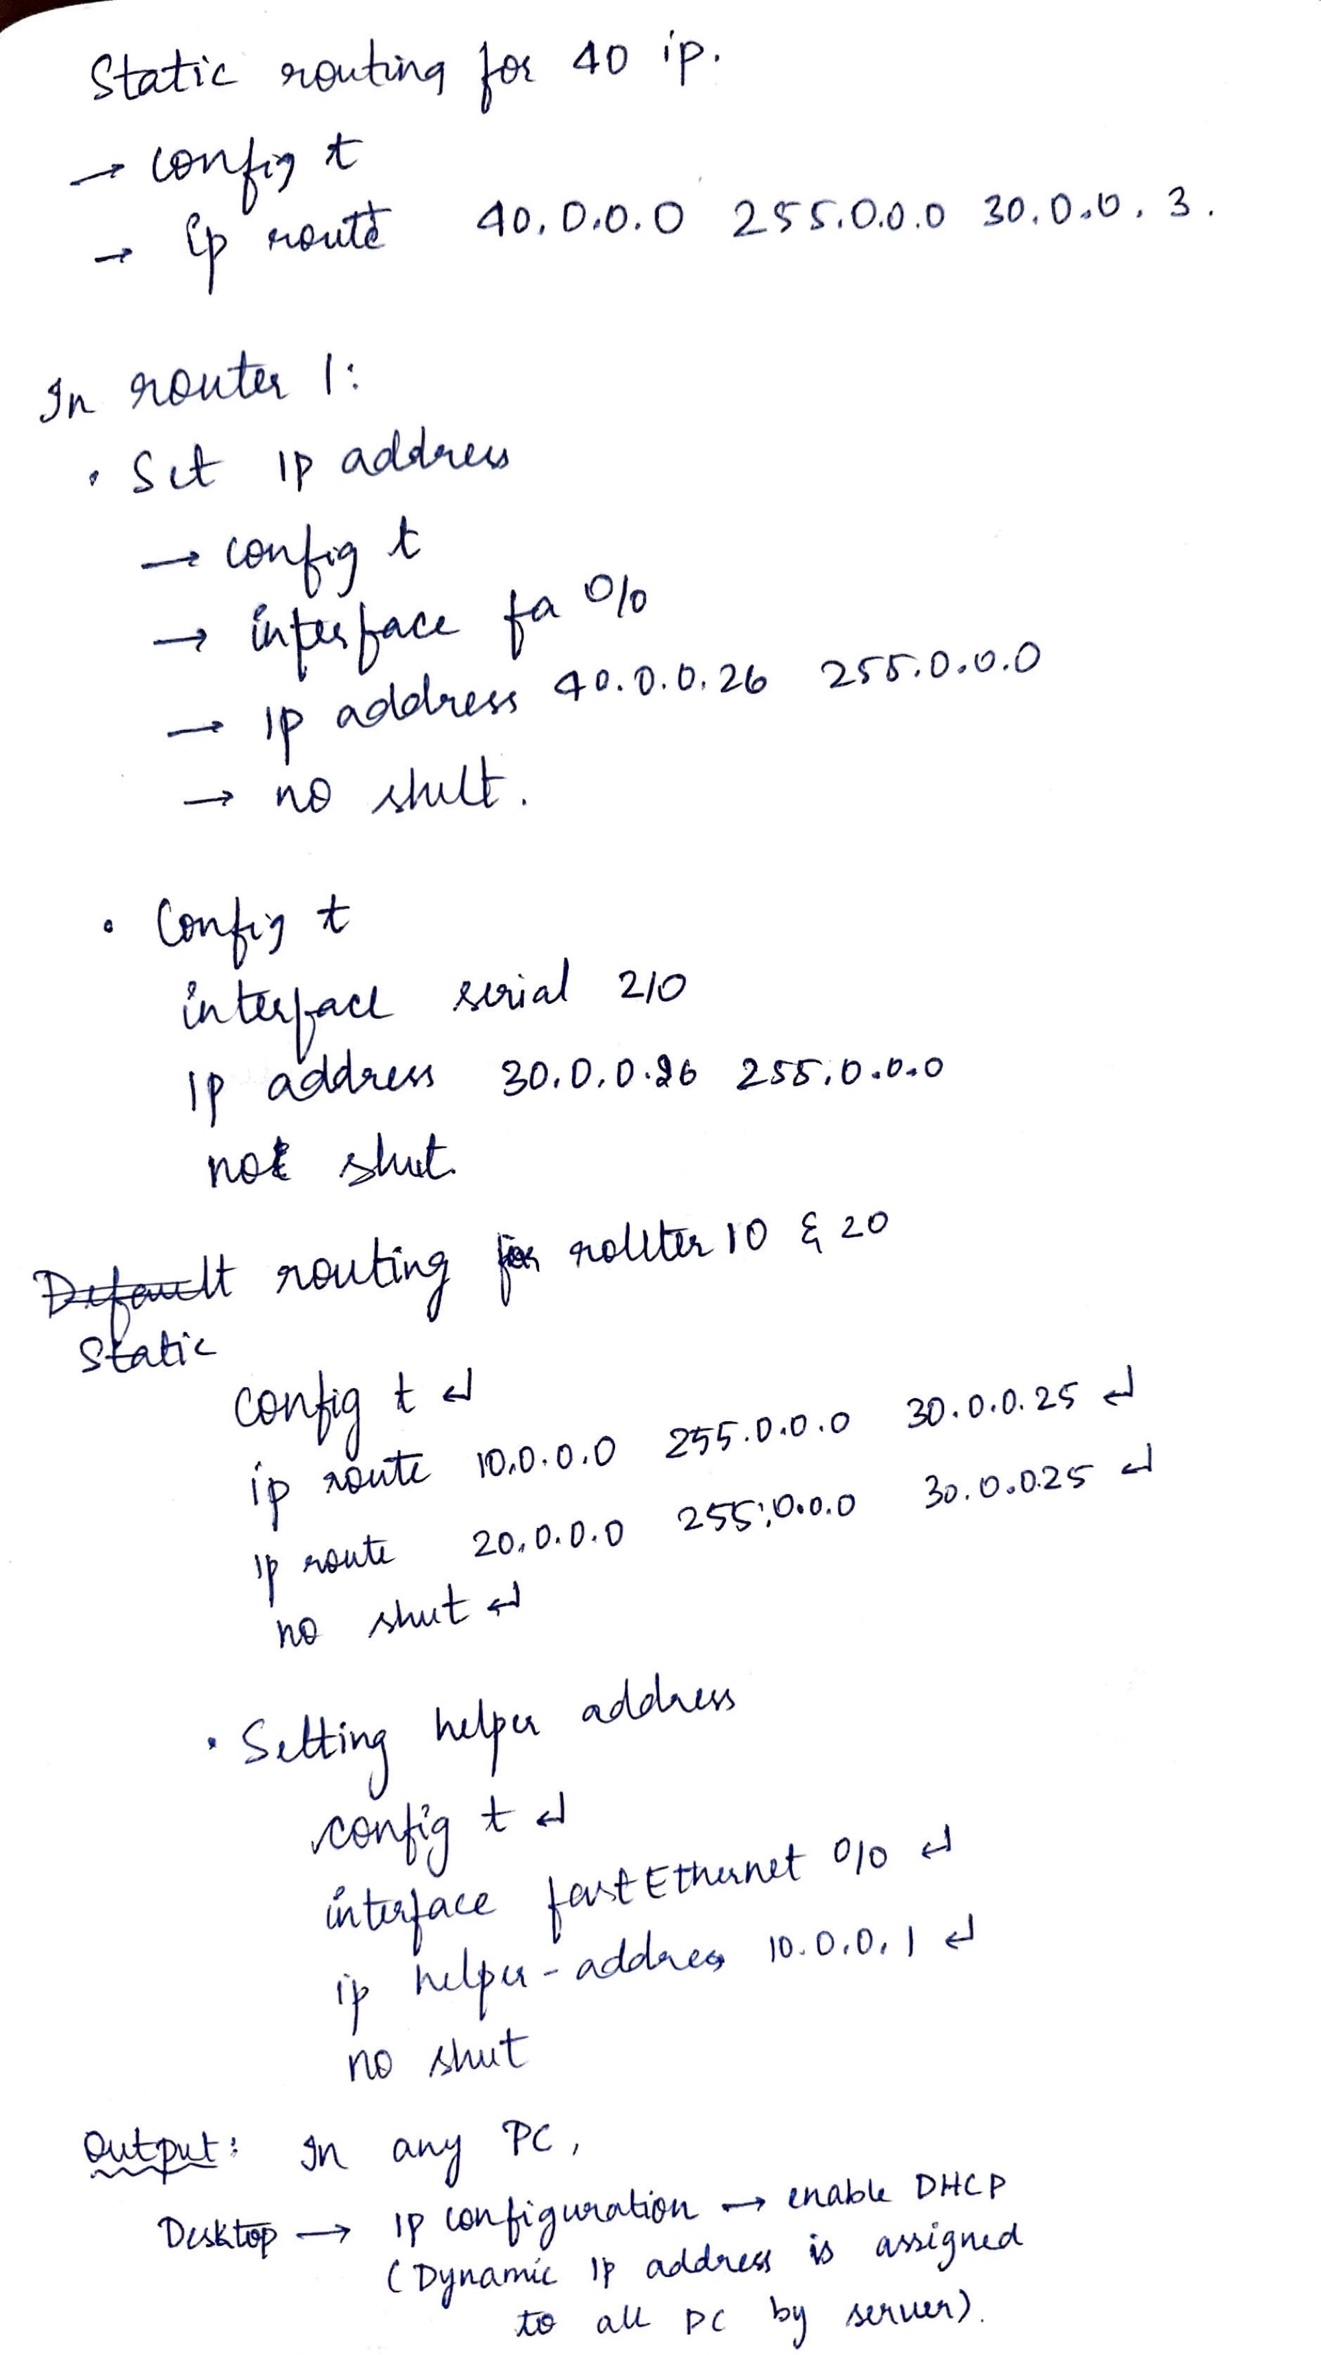 Static routing for 40 ip.
→ config t
→ ip route 40.0.0.0 255.0.0.0 30.0.0.3.
In router 1:
• Set IP address
→ config t
→ interface fa 0/0
→ IP address 40.0.0.26 255.0.0.0
→ no shut.
• Config t
interface serial 2/0
IP address 30.0.0.26 255.0.0.0
not shut.
Default routing for router 10 & 20
Static
config t ↵
ip route 10.0.0.0 255.0.0.0 30.0.0.25 ↵
ip route 20.0.0.0 255.0.0.0 30.0.0.25 ↵
no shut ↵
• Setting helper address
config t ↵
interface fastEthernet 0/0 ↵
ip helper-address 10.0.0.1 ↵
no shut
Output: In any PC,
Desktop → IP configuration → enable DHCP
(Dynamic IP address is assigned
to all PC by server).